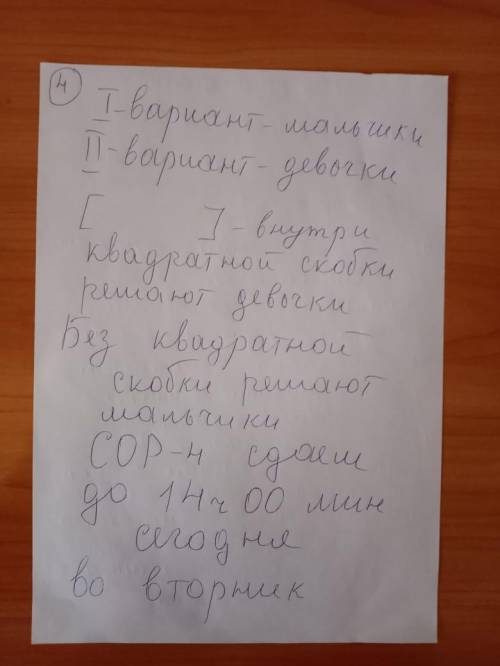 4
I-вариант-мальчики
II-вариант-девочки
[ ]-внутри
квадратной скобки
решают девочки
Без квадратной
скобки решают
мальчики
СОР-4 сдаем
до 14ч 00 мин
сегодня
во вторник